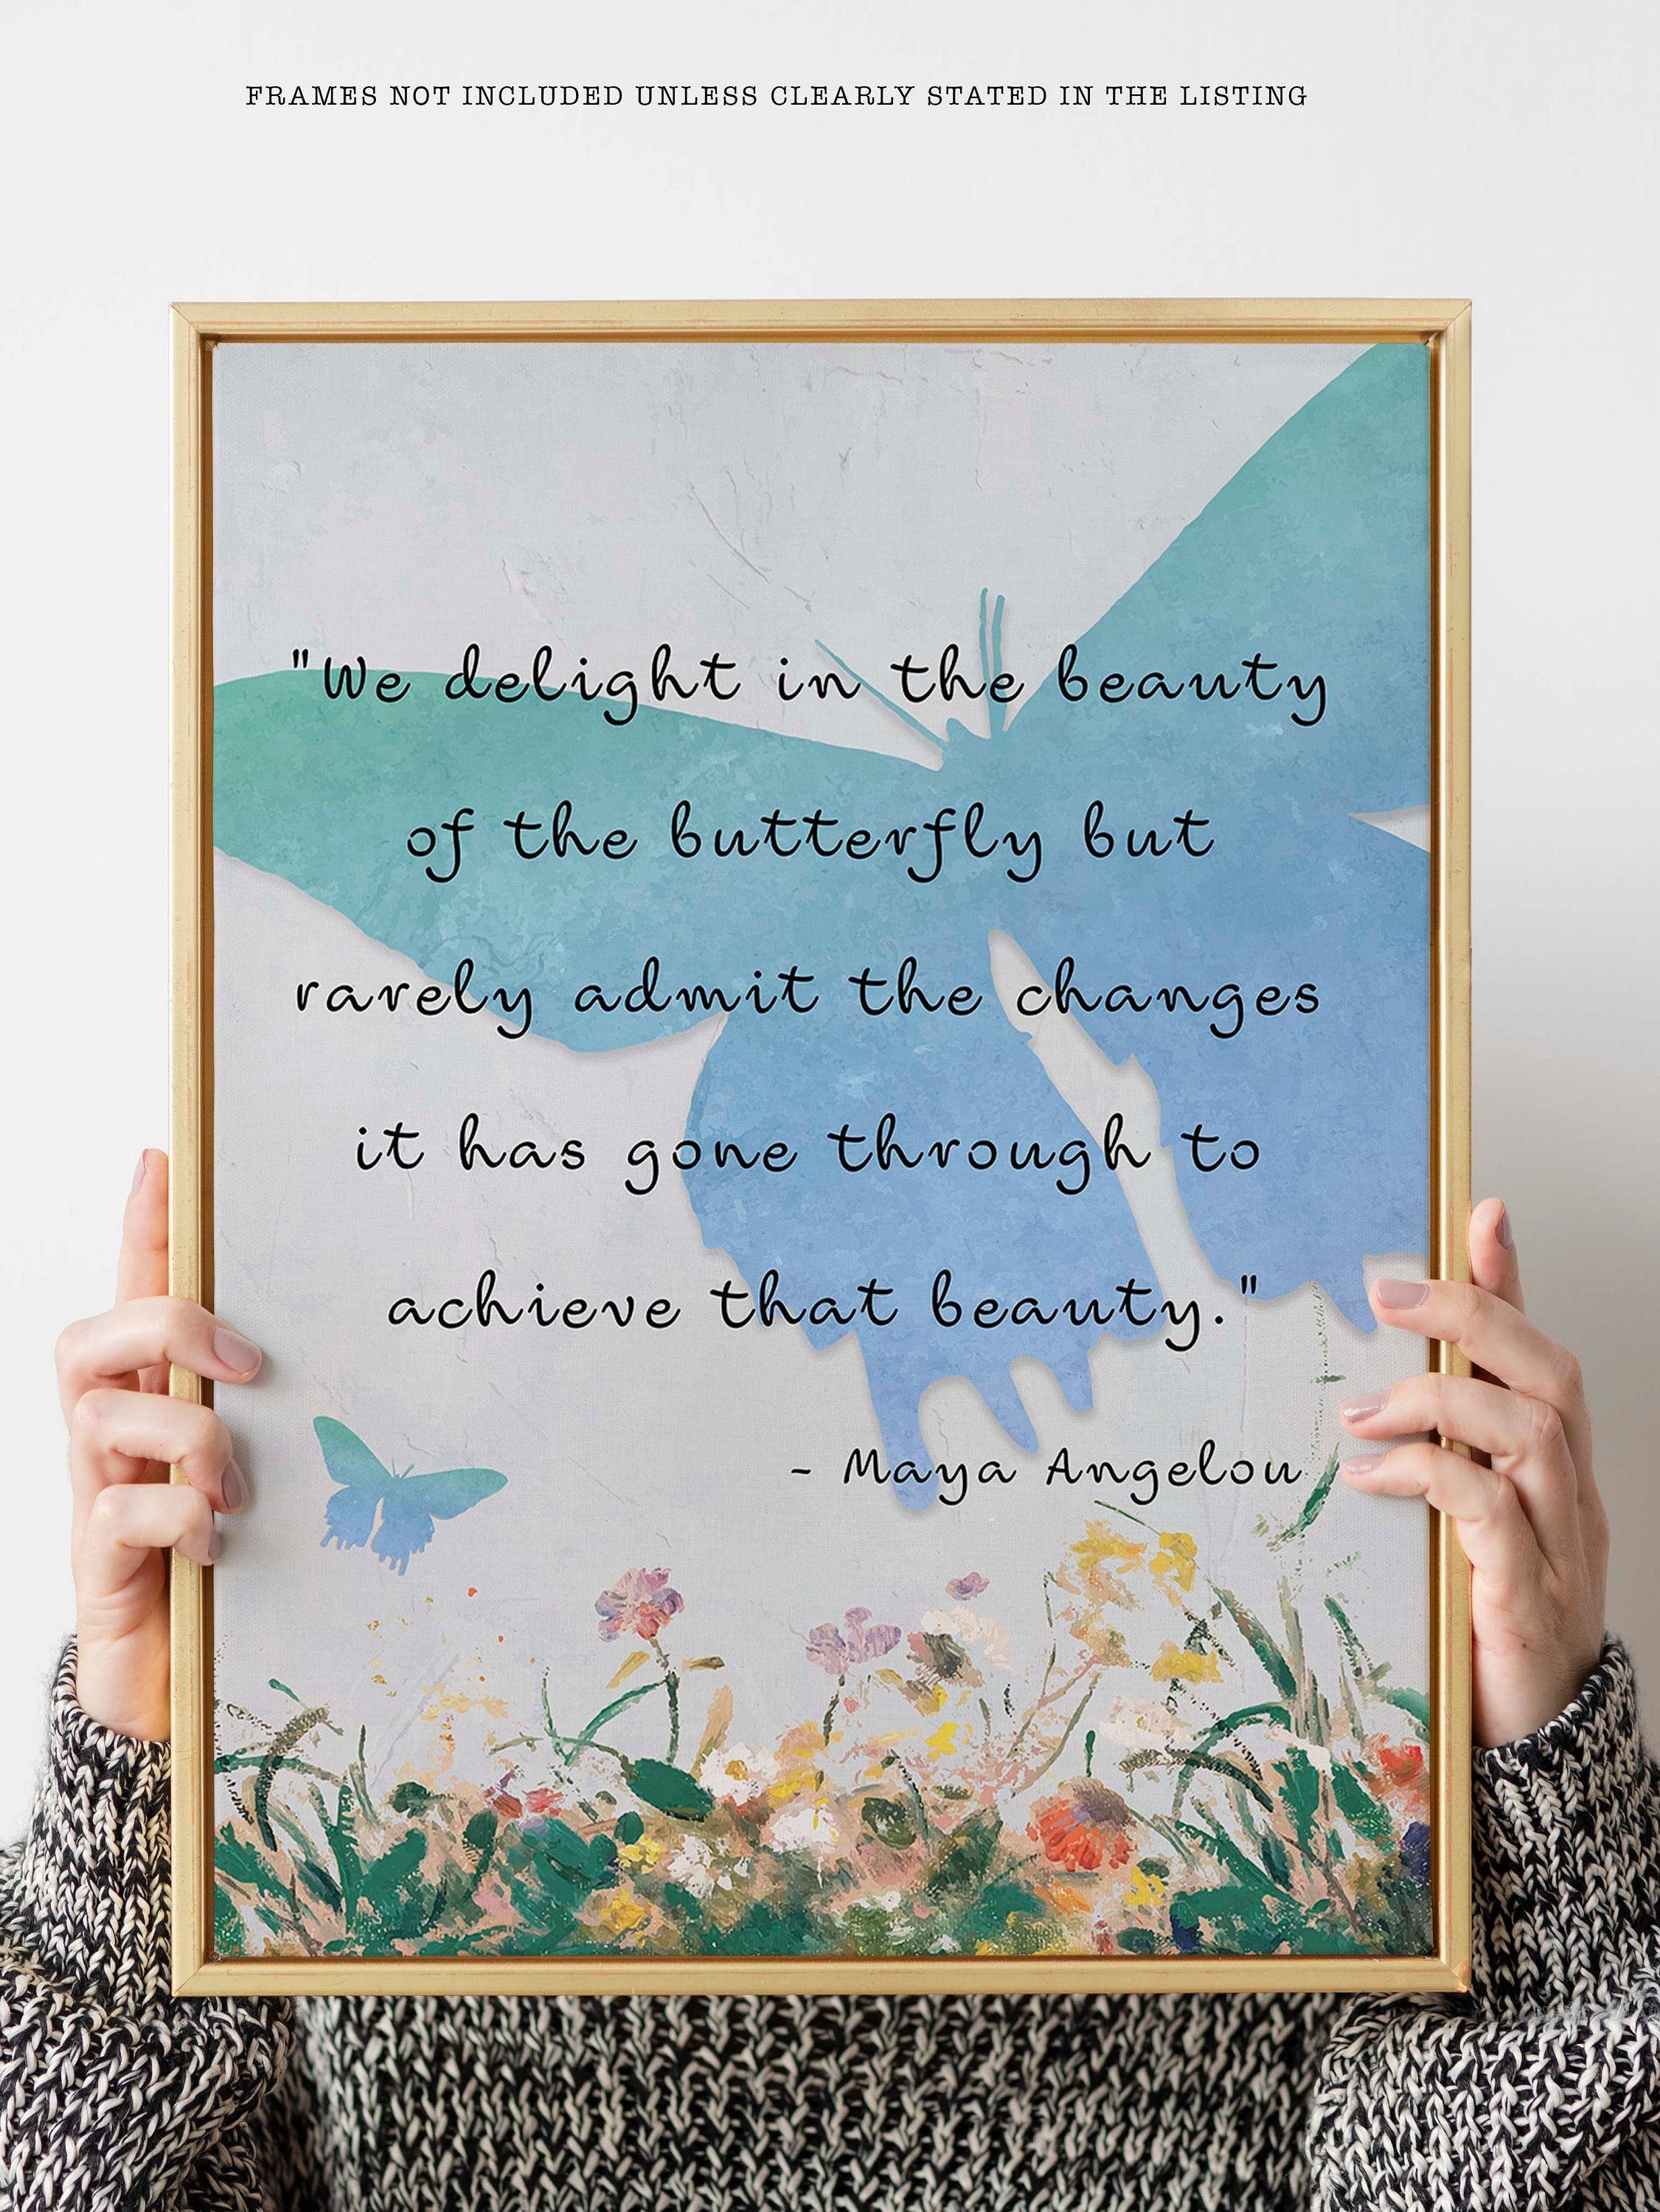 FRAMES NOT INCLUDED UNLESS CLEARLY STATED IN THE LISTING
"We delight in the beauty
of the butterfly but
rarely admit the changes
it has gone through to
achieve that beauty."
- Maya Angelou